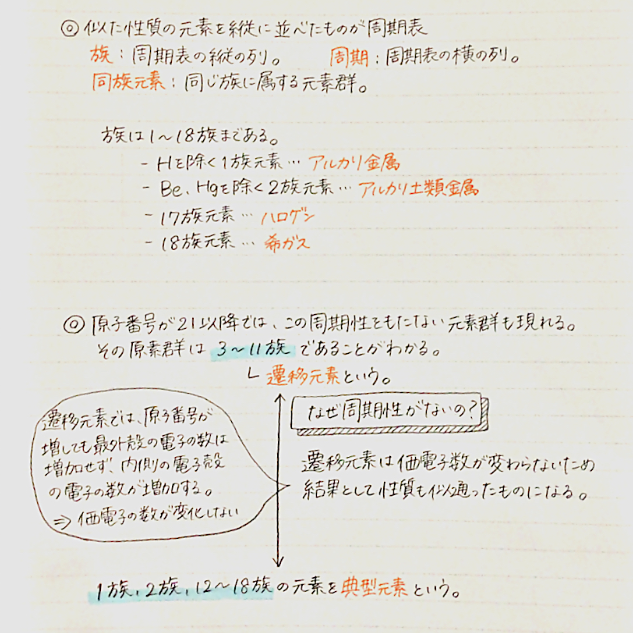 ◎ 似た性質の元素を縦に並べたものが周期表
族：周期表の縦の列。 周期：周期表の横の列。
同族元素：同じ族に属する元素群。
族は1〜18族まである。
- Hを除く1族元素… アルカリ金属
- Be、Hgを除く2族元素… アルカリ土類金属
- 17族元素… ハロゲン
- 18族元素… 希ガス
◎ 原子番号が21以降では、この周期性をもたない元素群も現れる。
その原素群は3〜11族であることがわかる。
└ 遷移元素という。
なぜ周期性がないの？
遷移元素では、原子番号が
増しても最外殻の電子の数は
増加せず、内側の電子殻
の電子の数が増加する。
⇒ 価電子の数が変化しない
遷移元素は価電子数が変わらないため
結果として性質も似通ったものになる。
1族，2族，12〜18族の元素を典型元素という。